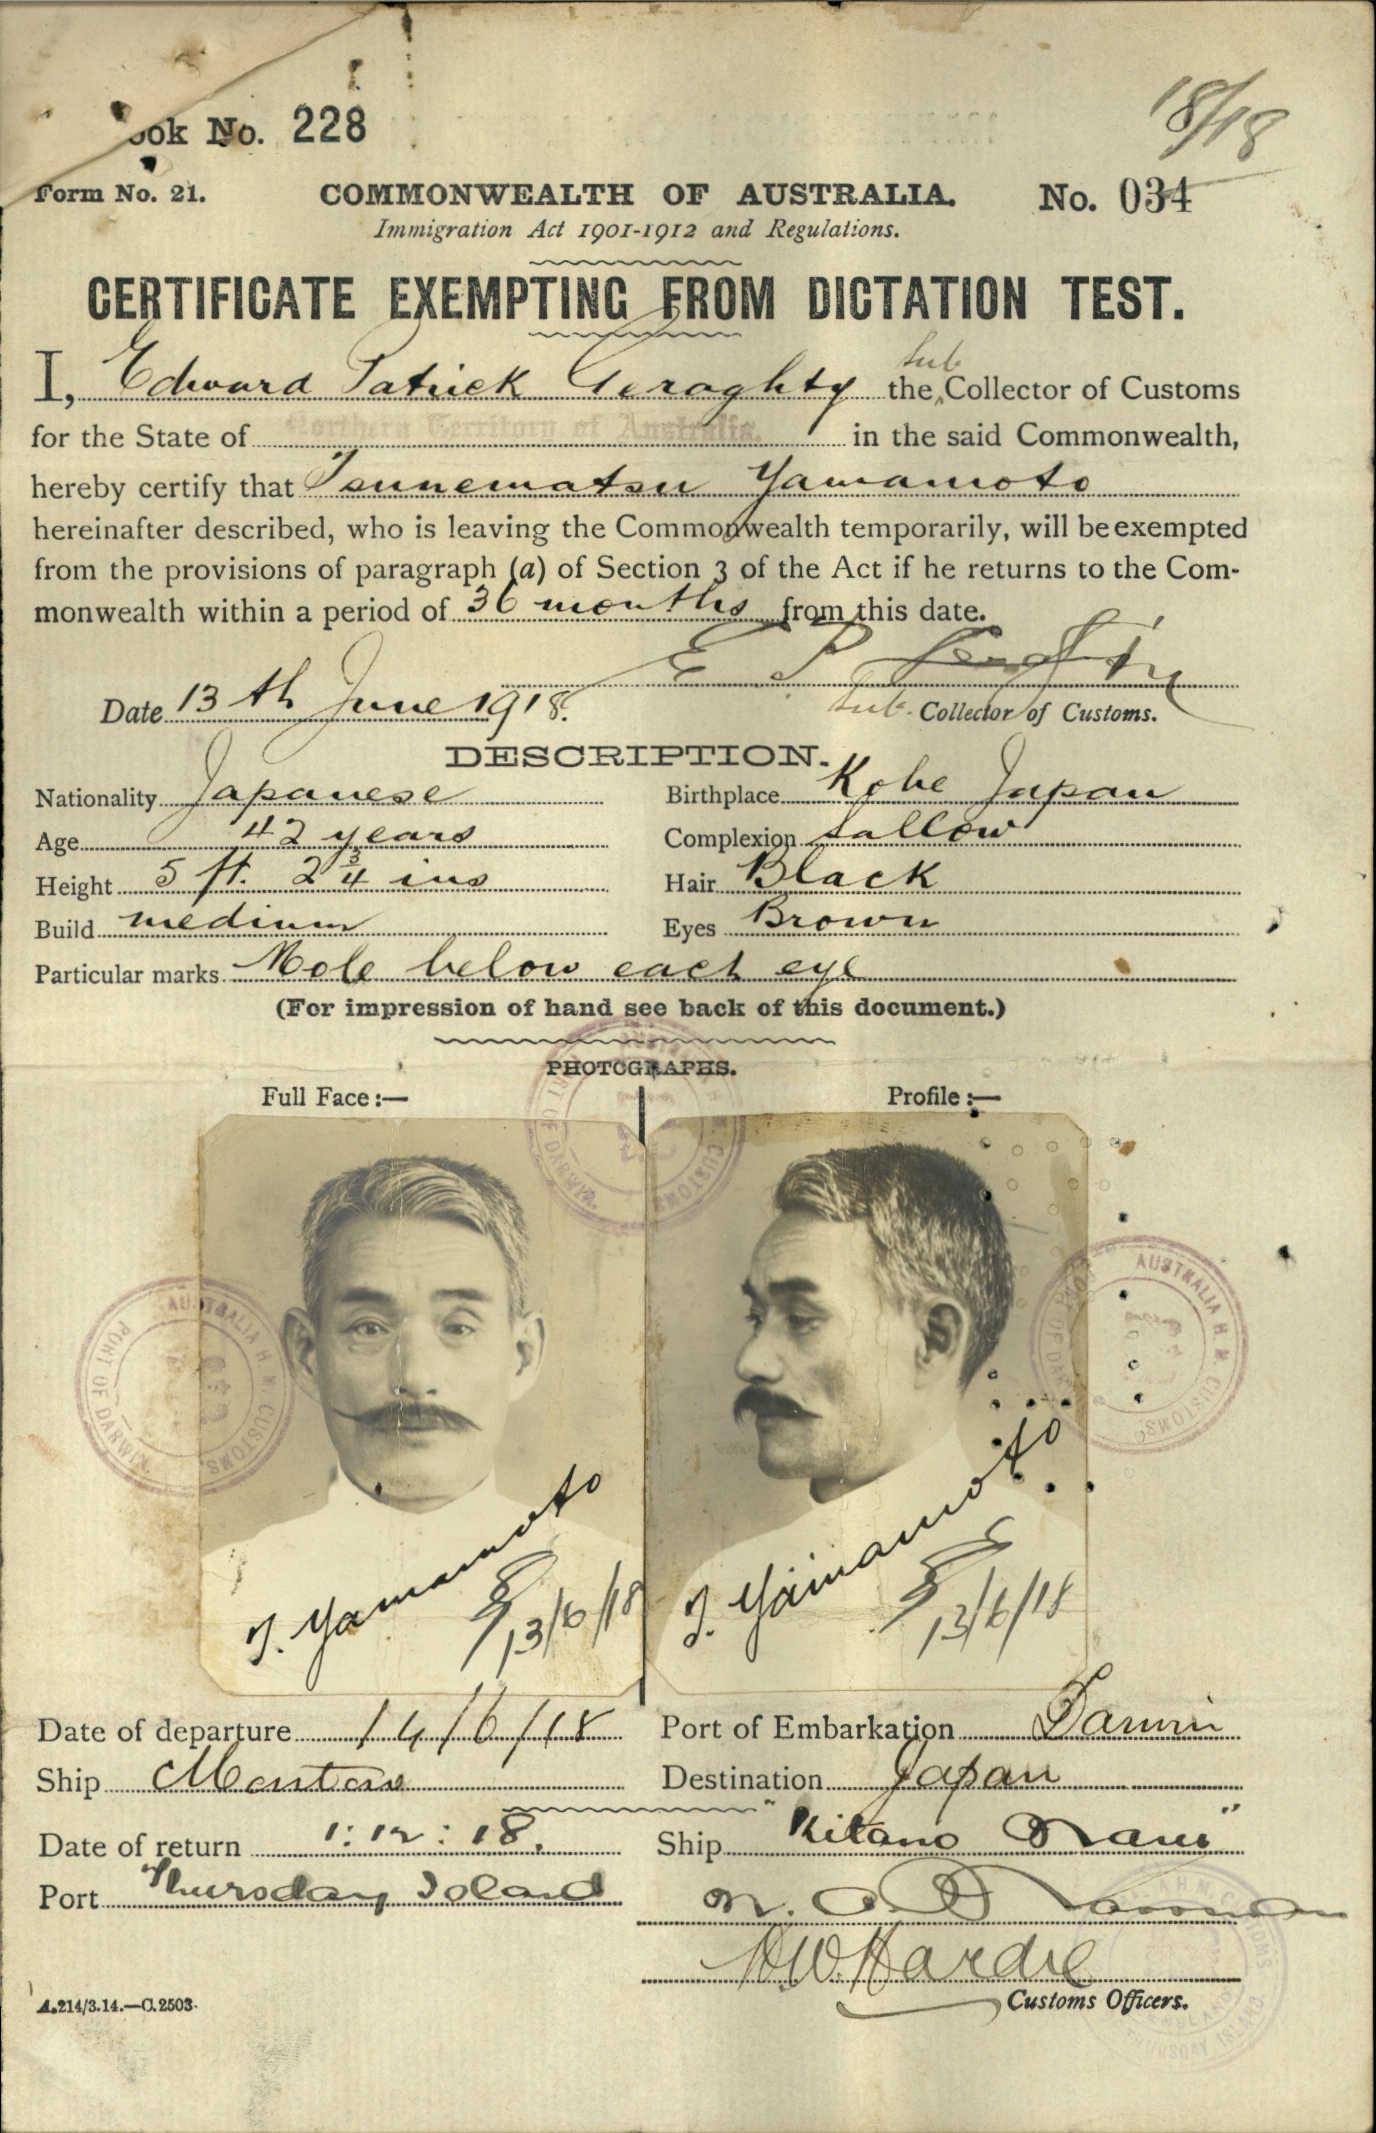 ook No. 228
18/18
Form No. 21. COMMONWEALTH OF AUSTRALIA. No. 034
Immigration Act 1901-1912 and Regulations.
CERTIFICATE EXEMPTING FROM DICTATION TEST.
I, Edward Patrick Geraghty the Sub Collector of Customs
for the State of Northern Territory of Australia. in the said Commonwealth,
hereby certify that Tsunematsu Yamamoto
hereinafter described, who is leaving the Commonwealth temporarily, will be exempted
from the provisions of paragraph (a) of Section 3 of the Act if he returns to the Com-
monwealth within a period of 36 months from this date.
E P Geraghty
Date 13th June 1918. Sub. Collector of Customs.
DESCRIPTION.
Nationality Japanese Birthplace Kobe Japan
Age 42 years Complexion Sallow
Height 5 ft. 2 3/4 ins Hair Black
Build medium Eyes Brown
Particular marks Mole below each eye
(For impression of hand see back of this document.)
PHOTOGRAPHS.
Full Face:— Profile:—
AUSTRALIA H. M. CUSTOMS PORT OF DARWIN.
AUSTRALIA H. M. CUSTOMS PORT OF DARWIN.
AUSTRALIA H. M. CUSTOMS PORT OF DAR
T. Yamamoto T. Yamamoto
13/6/18 13/6/18
Date of departure 14/6/18 Port of Embarkation Darwin
Ship Montoro Destination Japan
Date of return 1:12:18. Ship "Kitano Maru"
Port Thursday Island
H.W. Hardie
Customs Officers.
H M CUSTOMS THURSDAY ISLAND
A.214/3.14.—C.2503.